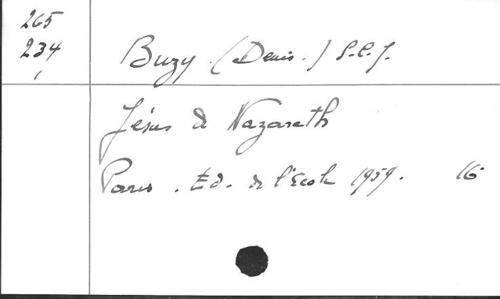 265
234
Buzy. (Denis.) S.C.J.
Jésus de Nazareth
Paris. Ed. de l'Ecole 1959. 16